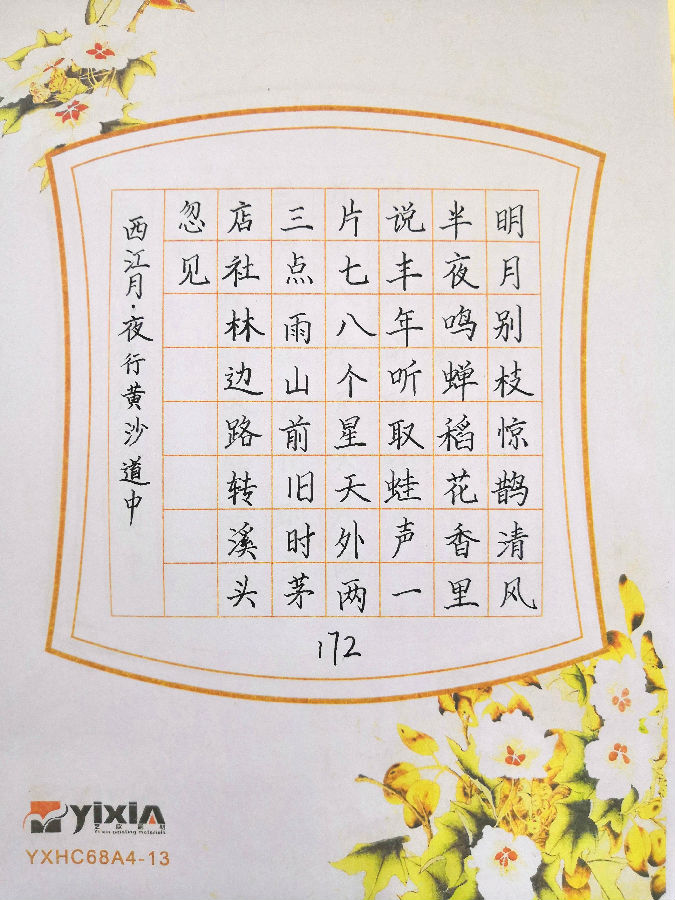 明月别枝惊鹊清风
半夜鸣蝉稻花香里
说丰年听取蛙声一
片七八个星天外两
三点雨山前旧时茅
店社林边路转溪头
忽见
西江月·夜行黄沙道中
172
yixin
YXHC68A4-13